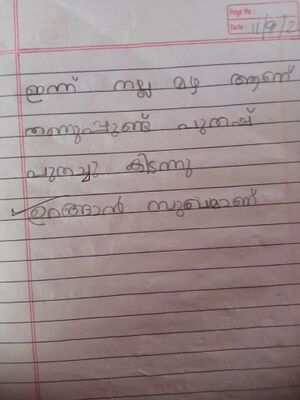 Page No :
Date : 11/9/2
ഇന്ന് നല്ല മഴ ആണ്
തണുപ്പുണ്ട് പുതപ്പ്
പുതച്ചു കിടന്നു
ഉറങ്ങാൻ സുഖമാണ്